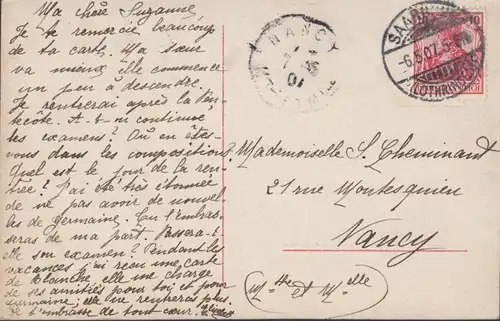 Ma chère Suzanne,
Je te remercie beaucoup
de ta carte. Ma sœur
va mieux, elle commence
un peu à descendre.
Je rentrerai après la Pen-
tecôte. A-t-on continué
les examens? Où en êtes-
vous dans les compositions?
Quel est le jour de la ren-
trée? J'ai été très étonnée
de ne pas avoir de nouvel-
les de Germaine. Tu l'embras-
seras de ma part. Passera-t-
elle son examen? Pendant les
vacances j'ai reçu une carte
de Blanche, elle me charge
de ses amitiés pour toi et pour
Germaine; elle ne rentrera plus.
Je t'embrasse de tout cœur.
NANCY
SAAR
-6.5.07.5
(LOTHRINGEN)
10
REICH
Mademoiselle S. Cheminant
21 rue Montesquieu
Nancy
(Mtte et Melle)